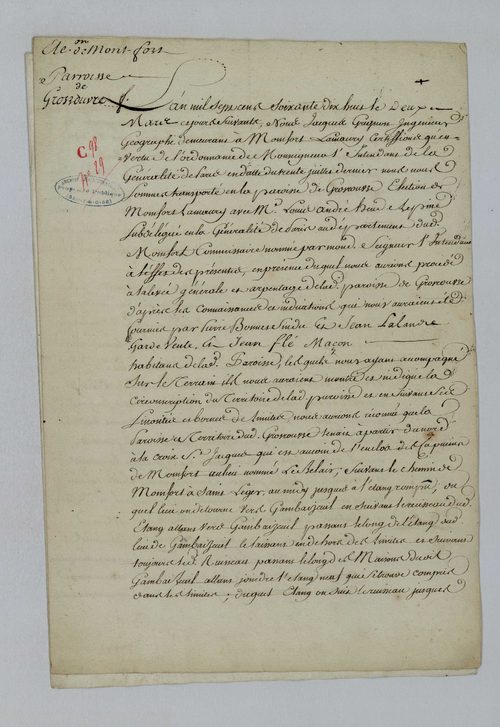 Ele.on de Mont-fort
Parroisse
de
Grosrouvre
L'an mil sept cens soixante dix huit le deux
Mars et jours suivants, Nous Jacques Guignon Ingénieur
Geographe demeurant à Monfort Lamaury Certiffions qu'en
vertu de l'ordonnance de Monseigneur l'Intendant de la
Généralité de Paris en datte du trente juillet dernier nous nous
Sommes transporté en la paroisse de Grosrouvre Election de
Monfort Lamaury avec Mr. Louis André
Subdélégué en la Généralité de Paris au département dud.
Monfort Commissaire nommé par mond. Seigneur l'Intendant
à l'effet des présentes, en présence duquel nous aurions procédé
à la levée générale et arpentage de lad. paroisse de Grosrouvre
d'après les connaissances et indications qui nous auraient été
fournis par Pierre et Jean Lalande
Garde Vente, & Jean flé Maçon
habitans de lad. Paroisse, lesquels nous ayant acompagné
Sur le Terrain ils nous auraient montré et indiqué la
circonscription du Territoire de lad. paroisse et en suivant ses
limittes et bornes de limites nous aurions reconnu que la
Paroisse et Territoire dud. Grosrouvre tenait à partir du nord
à la croix St. Jacques qui est au coin de l'enclos des Capucins
de Monfort au lieu nommé Le Relair, Suivant le chemin de
Monfort à Saint Léger, au midy jusques à l'étang rompu, du
quel lieu on détourne vers Gambaizeuil en suivant le ruisseau dud.
Etang allant vers Gambaizeuil passant le long de l'Etang dud
lieu de Gambaizeuil le laissant en dehors des limites et suivant
toujours led. Ruisseau passant le long des Maisons dud.
Gambaizeuil allant joindre l'étang neuf qui se trouve compris
dans les limites; duquel Etang on suit le ruisseau jusques
C 98
n° 29